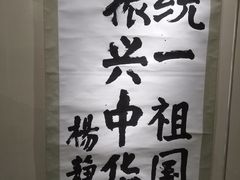 统一祖国
振兴中华
杨静